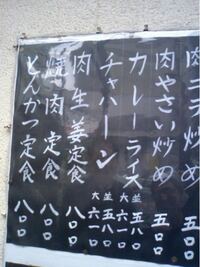 肉ニラ炒め 五五〇
肉やさい炒め 五五〇
カレーライス 並五八〇 大六一〇
チャハーン 並五八〇 大六一〇
肉生姜定食 八〇〇
焼肉定食 八〇〇
とんかつ定食 八〇〇